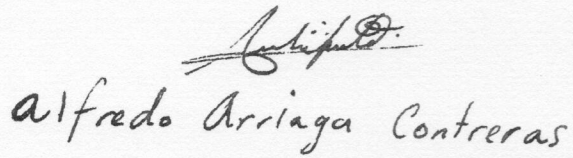 Alfredo Arriaga Contreras